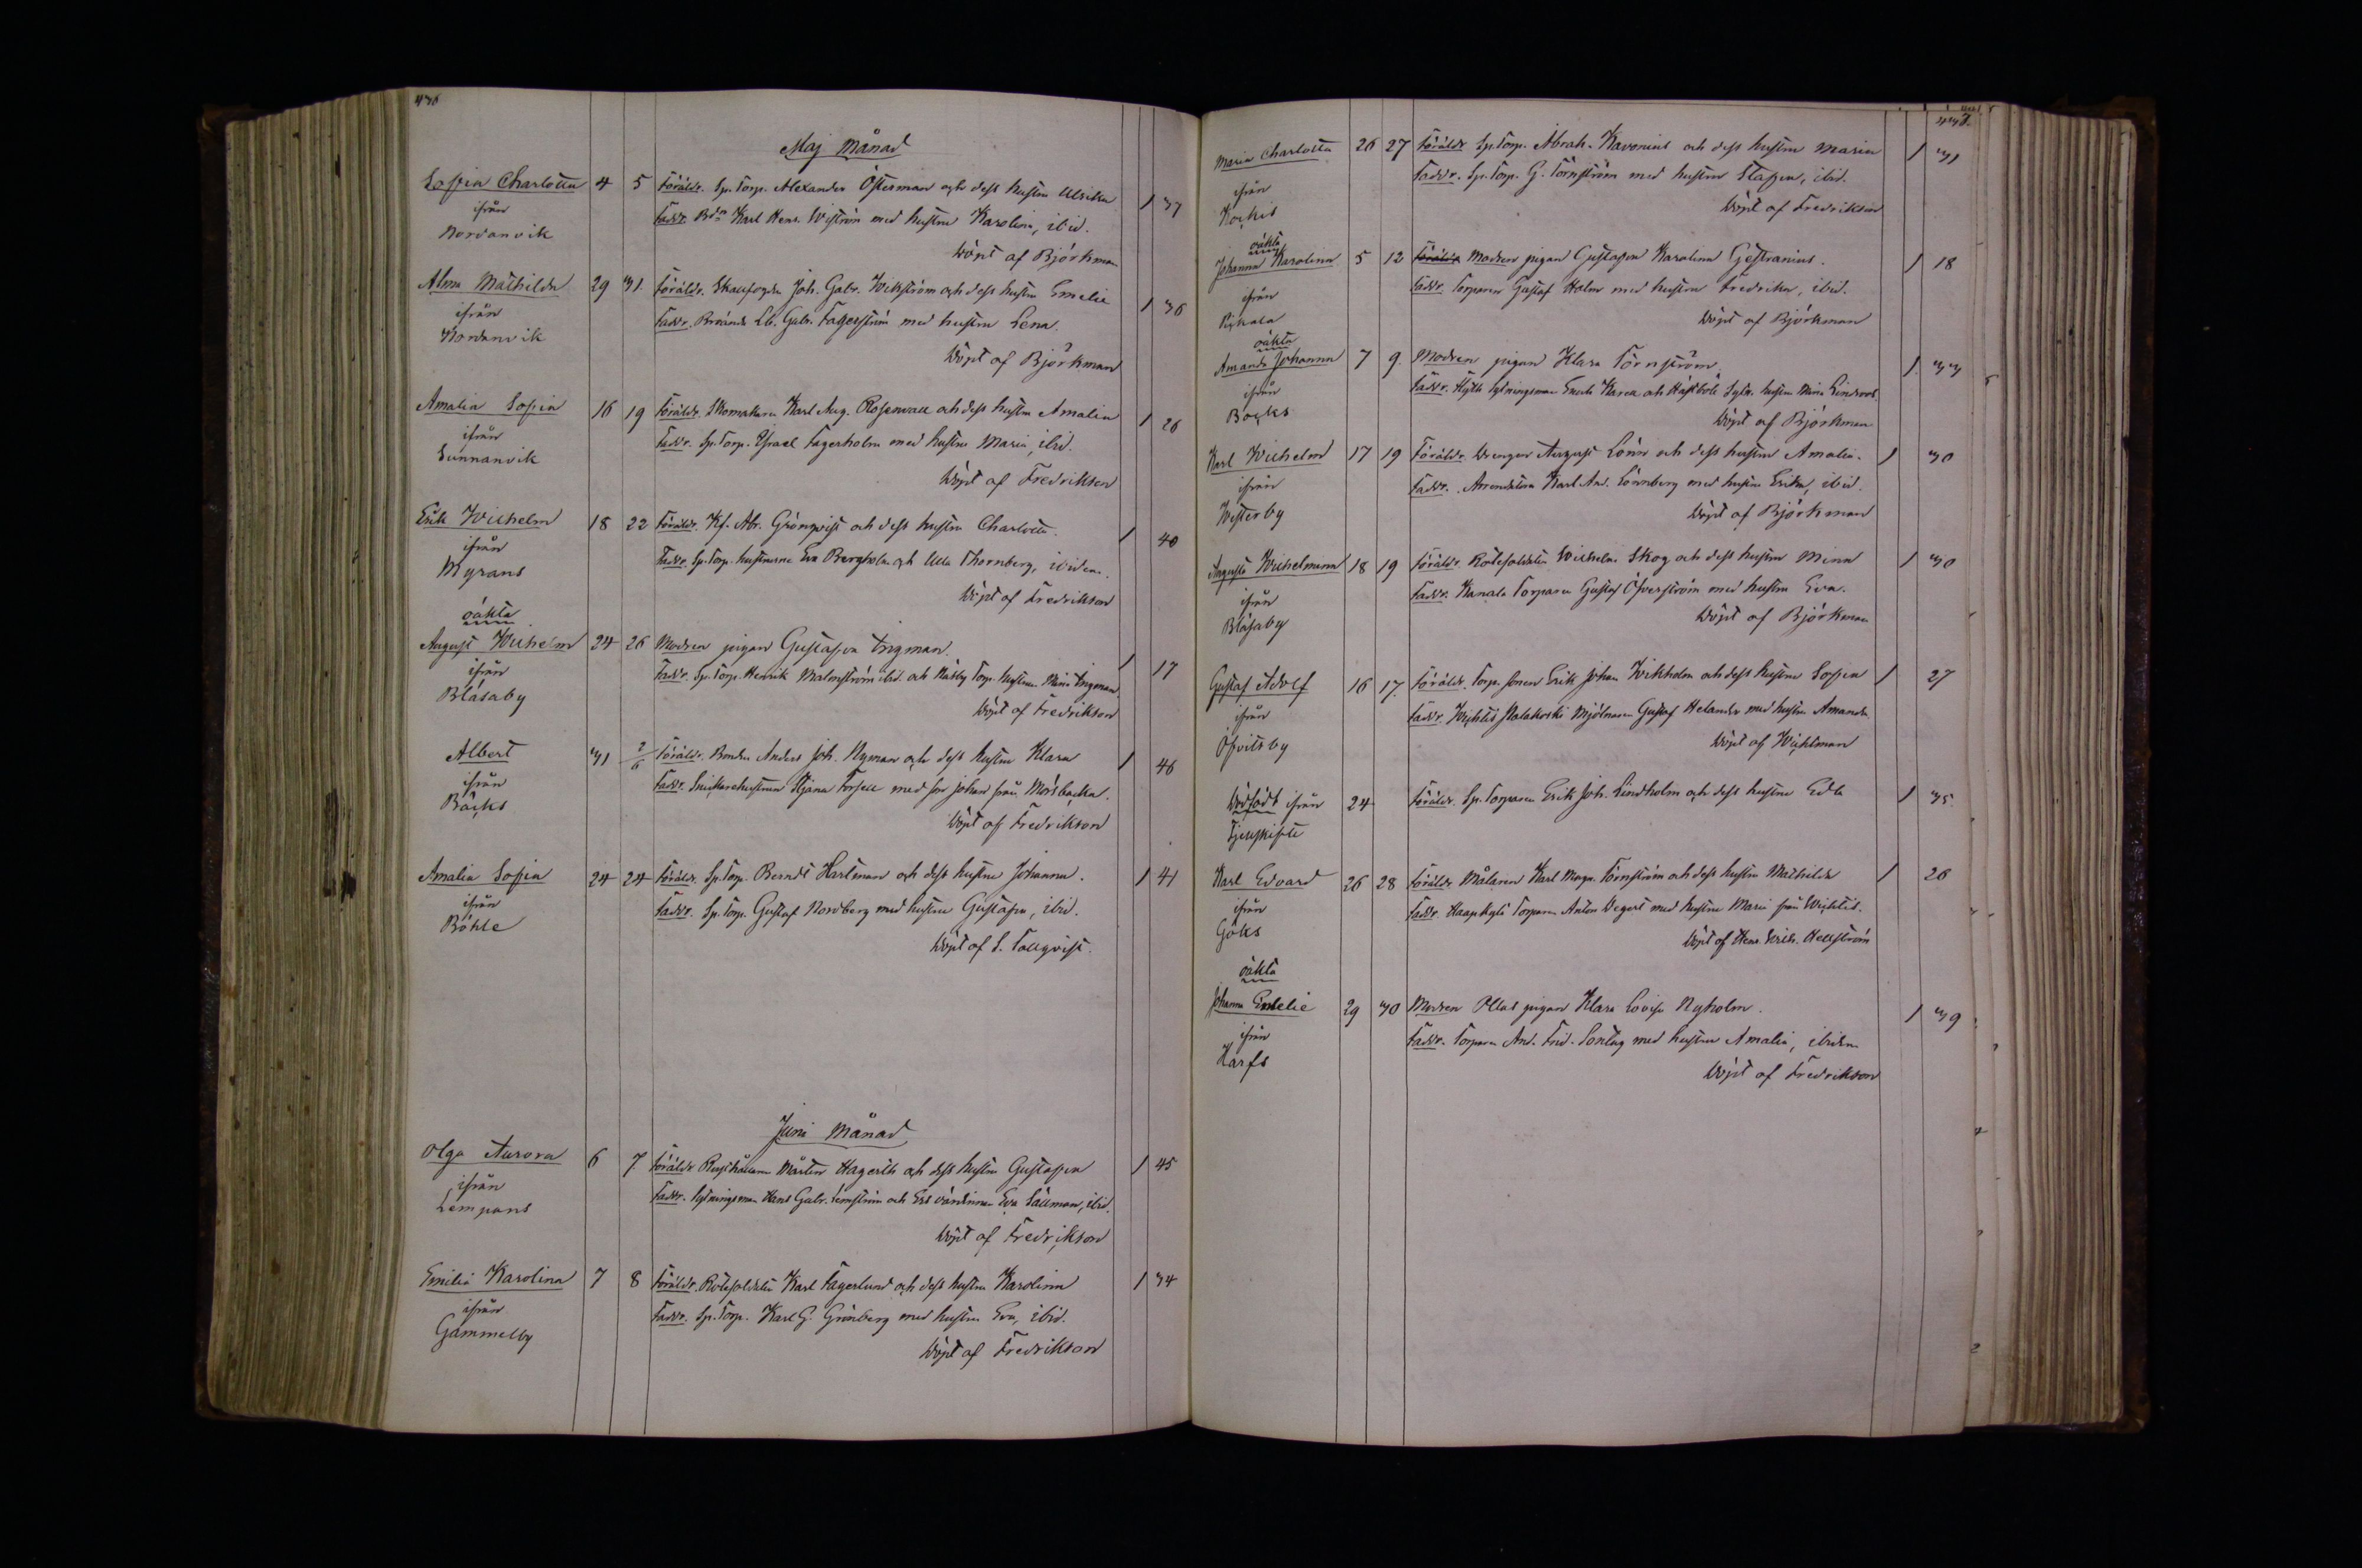 436
Maj Månad
Sofia Charlotta 4 5 Föräldr. Sp. Torp. Alexander Österman och dess hustru Ulrika 1 37
ifrån
Faddr. Bd:n Karl Henr. Wiström med hustru Karolina, ibid.
Nordanvik
Döpt af Björkman
Alma Mathilda 29 31 Föräldr. Skallfogden Joh. Gabr. Wikström och dess hustru Emelie 1 36
ifrån
Faddr. Gabr. Fagerström med hustru Lena.
Nordanvik
Döpt af Björkman
Amalia Sofia 16 19 Föräldr. Skomakaren Karl Aug. Rosenvall och dess hustru Amalia 1 26
ifrån
Faddr. Sp. Torp. Israel Fagerholm med hustru Maria, ibid.
Sunnanvik
Döpt af Fredrikson
Erik Wilhelm 18 22 Föräldr. Kf. Abr. Grönqvist och dess hustru Charlotta. 1 40
ifrån
Faddr. Sp. Torp. hustrurna Eva Bergholm och Ulla Thornberg, ibidem.
Myrans
Döpt af Fredrikson
oäkta
August Wilhelm 24 26 Modren pigan Gustafva Ingman. 1 17
ifrån
Faddr. Sp. Torp. Henrik Malmström ibid. och Näsby Torp. hustrun Mina Ingman
Blåsaby
Döpt af Fredrikson
Albert 31 2/6 Föräldr. Bonden Anders Joh. Nyman och dess hustru Klara 1 46
ifrån
Faddr. Snickarehustrun Stjana Forsell med son Johan från Mörsbacka.
Bäcks
Döpt af Fredrikson
Amalia Sofia 24 24 Föräldr. Sp. Torp. Berndt Hartman och dess hustru Johanna. 1 41
ifrån
Faddr. Sp. Torp. Gustaf Nordberg med hustru Gustafva, ibid.
Böhle
Döpt af S. Tallqvist.
Juni Månad
Olga Aurora 6 7 Föräldr. Mårten Hagerth och dess hustru Gustafva 1 45
ifrån
Faddr. Sytningsman Hans Gabr. Lemström och Eva Sällman, ibid.
Lempans
Döpt af Fredrikson
Emilia Karolina 7 8 Föräldr. Rotesoldaten Karl Fagerlund och dess hustru Karolina 1 34
ifrån
Faddr. Sp. Torp. Karl G. Grönberg med hustru Eva, ibid.
Gammelby
Döpt af Fredrikson
437.
Maria Charlotta 26 27 Föräldr. Sp. Torp. Abrah. Kavonius och dess hustru Maria 1 31
ifrån
Faddr. Sp. Torp. G. Törnström med hustru Staffva, ibid.
Kockis
Döpt af Fredrikson
oäkta
Johanna Karolina 5 12 Föräldr. Modren pigan Gustafva Karolina Gestranius. 1 18
ifrån
Faddr. Torparen Gustaf Holm med hustru Fredrika, ibid.
Pikala
Döpt af Björkman
oäkta
Amanda Johanna 7 9 Modren pigan Klara Törnström 1 33
ifrån
Faddr. Sytningsman och hustru Mina Lindroos.
Bäcks
Döpt af Björkman
Karl Wilhelm 17 19 Föräldr. Drengen August Lönn och dess hustru Amalia. 1 30
ifrån
Faddr. Arrendatorn Karl And. Lönnberg med hustru Erika, ibid.
Westerby
Döpt af Björkman
Augusta Wilhelmina 18 19 Föräldr. Rotesoldaten Wilhelm Skog och dess hustru Minna 1 30
ifrån
Faddr. Kanala Torparen Gustaf Öfverström med hustru Eva.
Blåsaby
Döpt af Björkman
Gustaf Adolf 16 17 Föräldr. Torp. sonen Erik Johan Wikholm och dess hustru Sofia 1 27
ifrån
Faddr. Wichtis Palakoski Mjölnaren Gustaf Helander med hustru Amanda.
Öfvitsby
Döpt af Wichtman
Dödfödt ifrån 24 Föräldr. Sp. Torparen Erik Joh. Lindholm och dess hustru Edla 1 35
Karl Edvard 26 28 Föräldr. Målaren Karl Magn. Törnström och dess hustru Mathilda 1 26
ifrån
Faddr. Haapkylä Torparen Anton Wegert med hustru Maria från Wichtis.
Göks
Döpt af Henr. Wilh. Hellström
oäkta
Johanna Emelie 29 30 Modren Ollas pigan Klara Lovisa Nyholm. 1 39
ifrån
Faddr. Torparen And. Fred. Sontag med hustru Amalia, ibidem
Harfs
Döpt af Fredrikson